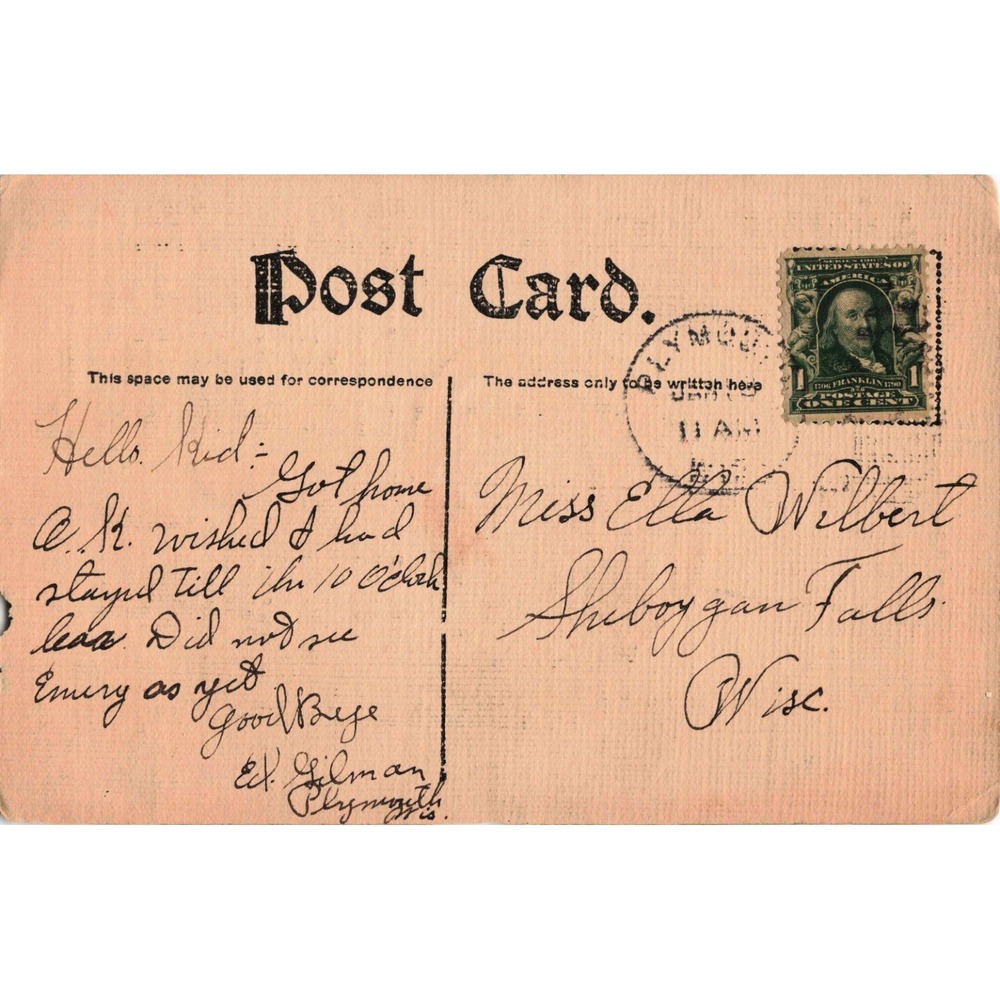 Post Card.
This space may be used for correspondence
The address only to be written here
Hello. Kid:-
Got home
O.K. wished I had
stayed till the 10 O'Clock
Did not see
Emery as yet
Good Bye
Ed. Gilman
Plymouth
Wis.
SERIES 1902
UNITED STATES OF
AMERICA
1706 FRANKLIN 1790
1 1
POSTAGE
ONE CENT
PLYMOU
11 AM
Miss Ella Wilbert
Sheboygan Falls.
Wisc.